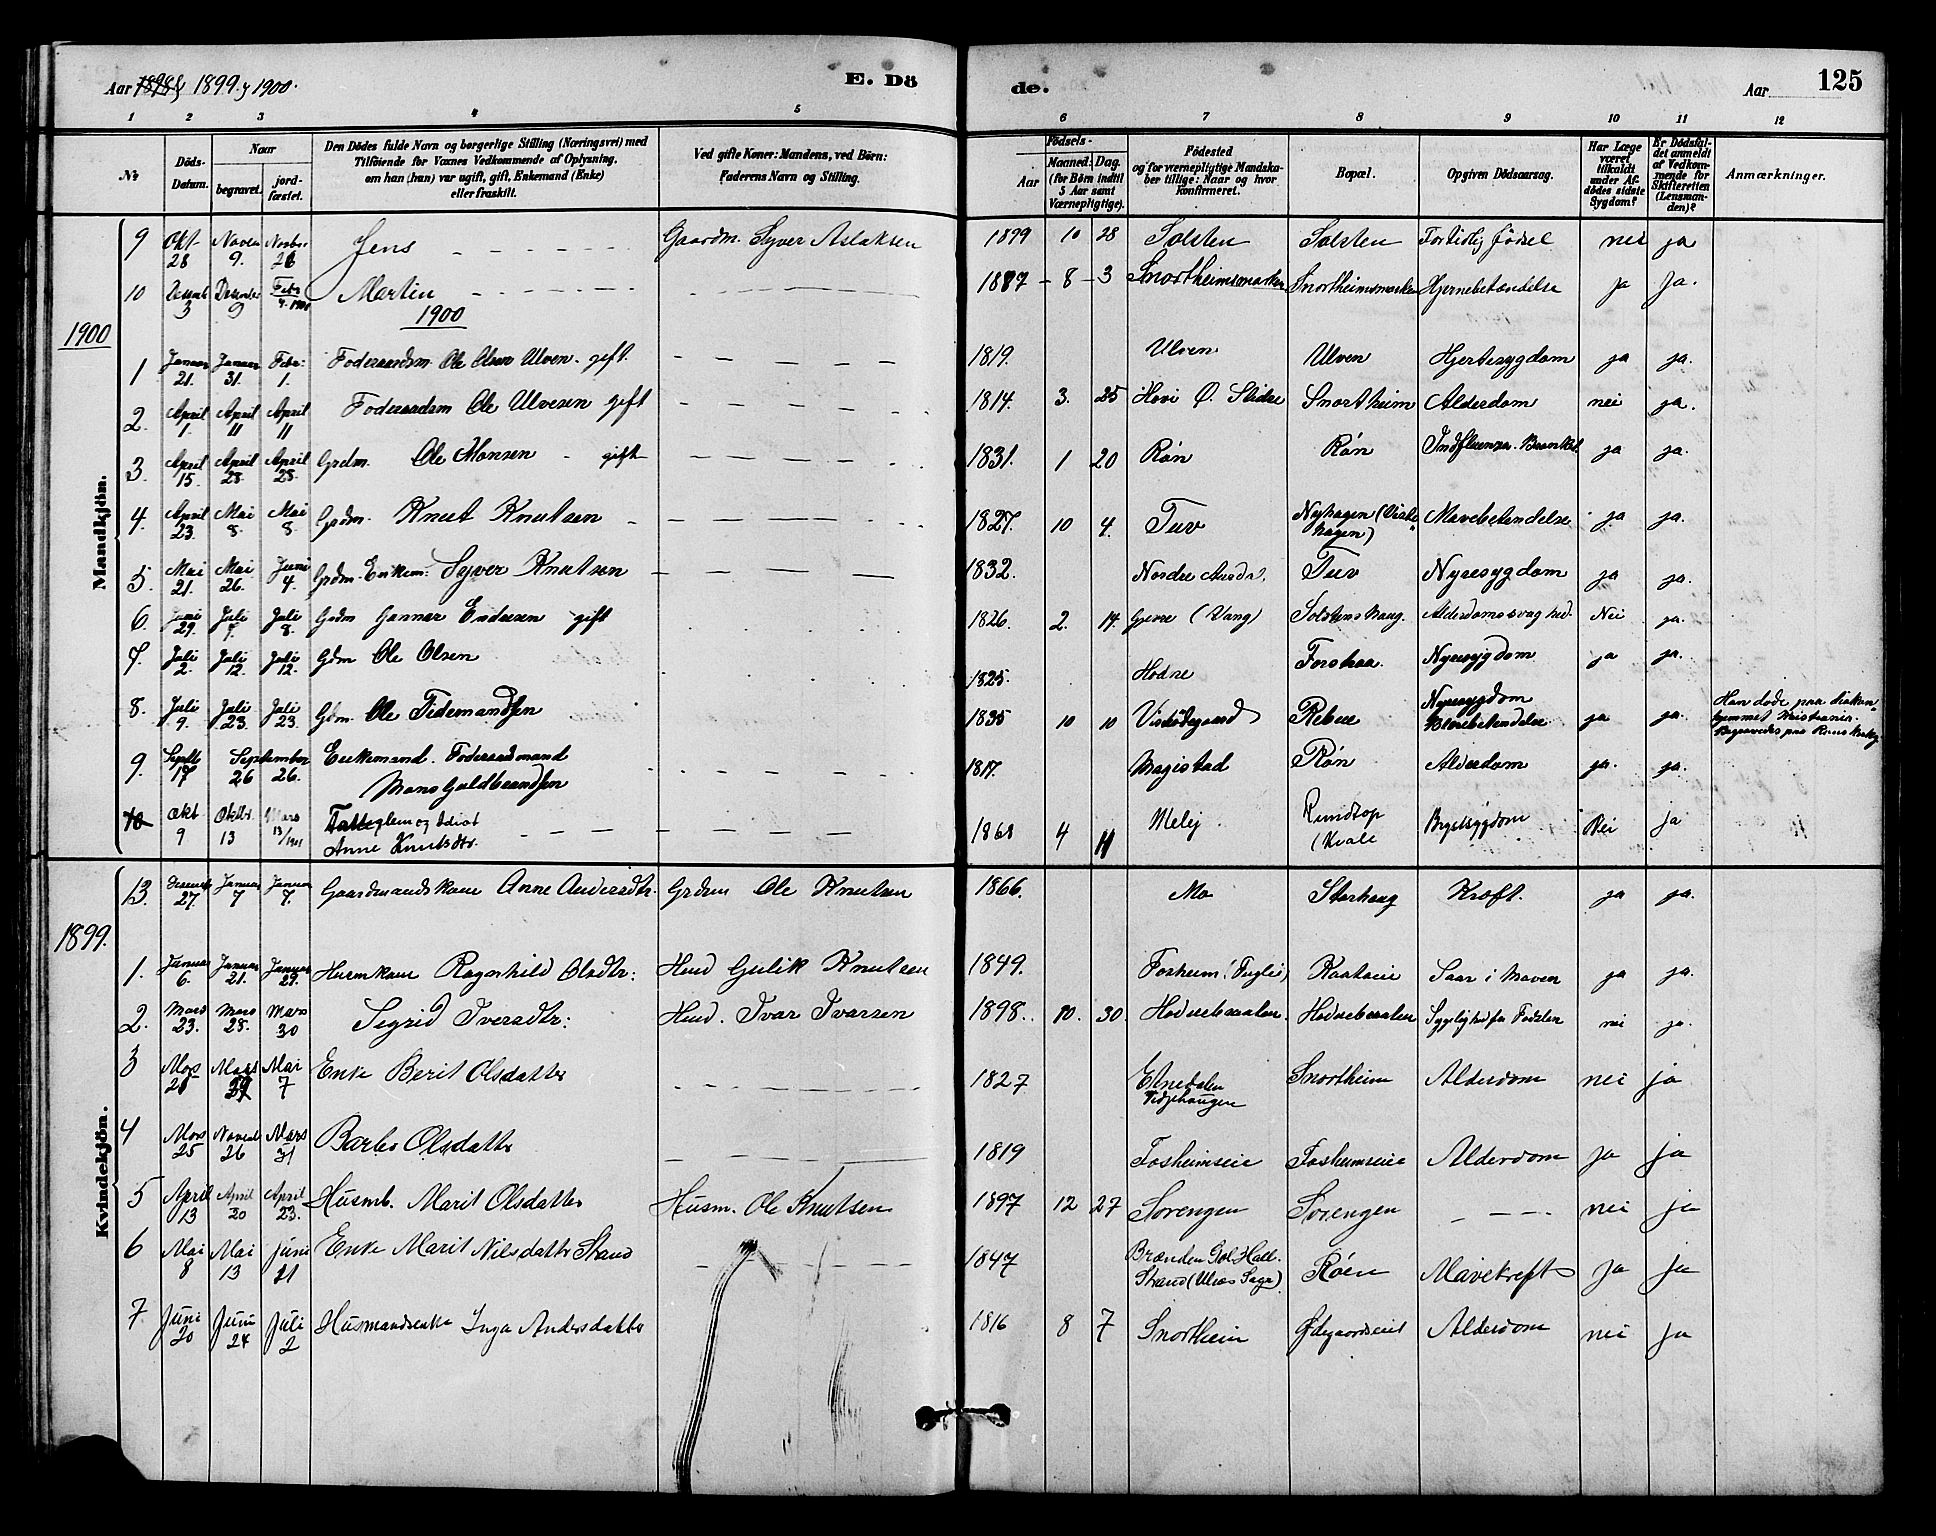 Aar 1898 & 1899 & 1900.
E. Dö
de.
Aar
125
1 2 3 4 5 6 7 8 9 10 11 12
No
Döds-Datum.
Naar
begravet.
jord-fæstet.
Den Dödes fulde Navn og borgerlige Stilling (Næringsvei) med
Tilföiende for Voxnes Vedkommende af Oplysning,
om han (hun) var ugift, gift, Enkemand (Enke)
eller fraskilt.
Ved gifte Koner: Mandens, ved Börn:
Faderens Navn og Stilling.
Födsels-
Aar
Maaned. Dag.
(for Börn indtil
5 Aar samt
Værnepligtige).
Födested
og for værnepligtige Mandska-
ber tillige: Naar og hvor
konfirmeret.
Bopæl.
Opgiven Dödsaarsag.
Har Læge
været
tilkaldt
under Af-
dödes sidste
Sygdom?
Er Dödsfal-
det anmeldt
af Vedkom-
mende for
Skifteretten
(Lensman-
den)?
Anmærkninger.
Mandkjön.
9 Okt 28 Novem 9. Novbr. 26 Jens Gaardm. Syver Aslaksen 1899 10 28 Solsten Solsten Fortidlig fødsel nei ja
10 Decemb 3 December 9 Febr. 4. 1900 Martin 1887 8 3 Snortheimsmarken Snortheimsmarken Hjernebetændelse ja ja.
1900
1900
1 Januar 21. Januar 31. Febr: 1. Foderaadsm. Ole Olsen Ulven. gift. 1819. Ulven Ulven Hjertesygdom ja ja.
2. April 1. April 11 April 11 Foderaadsm Ole Ulvesen gift 1814. 3. 25 Hovi Ø. Slidre Snortheim Alderdom nei ja.
3. April 15. April 28. April 28. Grdm. Ole Monsen gift 1831. 1 20 Røn Røn Indfluenza. ja ja.
4. April 23. Mai 8. Mai 8. Grdm. Knut Knutsen 1827. 10 4. Tuv Nyhagen Mavebetendelse ja ja.
5. Mai 21. Mai 26. Juni 4. Grdm. Enkem: Syver Knutsen 1832. Nordre Tuv Nyresygdom ja ja.
6. Juni 29. Juli 7. Juli 8. Grdm Gunnar Endresen gift 1826. 2. 14. Gjevre (Vang) Solstenshaug. Alderdomssvaghed. Nei ja.
7. Juli 2. Juli 12. Juli 12. Gdm Ole Olsen 1825. Hodne Forshaa. Nyresygdom ja ja.
8. Juli 9. Juli 23. Juli 23. Gdm. Ole Tidemandsen 1835 10 10 Rebne Nyresygdom
Blærebetendelse ja ja. Han døde paa diakon
hjemmet Kristiania.
Begravedes paa Røns Kirkeg.
9. Septb 17 September 26 26. Enkemand. Foderaadsmand
Mons Guldbrandsen 1817. Magistad Røn Alderdom ja. ja.
10 Okt 9 Oktbr. 13 Mars 13/1901 Fatteglem og Idiot
Anne Knutsdtr. 1868 4 11 Melej Rundtop
(Kvale Brystsygdom Nei ja
Kvindekjön.
13. Decemb 27. Januar 7 Januar 7. Gaardmandskone Anne Andersdtr. Grdm Ole Knutsen 1866. Mo Storhaug Kræft. ja ja.
1899.
1. Januar 6. Januar 21. Januar 29. Husmkone Ragnhild Olsdtr: Husm Gulik Knutsen 1849. Fosheim (Fuglei) Kaataeie Saar i Maven ja ja.
2. Mars 23. Mars 28. Mars 30 Sigrid Iversdtr: Husm. Ivar Ivarsen 1898. 10. 30. Hodnebraaten Hodnebraaten Sygelighed fra Fødslen nei ja.
3 Mars 28 Mars 29 Mai 7 Enke Berit Olsdatter 1827 Etnedalen
Snortheim Alderdom nei ja
4 Mars 25 26 Mars 31 Barbro Olsdatter 1819 Fosheimseie Fosheimseie Alderdom ja ja
5 April 13 April 20 April 23. Husmk. Marit Olsdatter Husm. Ole Knutsen 1897 12 27 Sorengen Sorengen nei ja
6 Mai 8 Mai 13 Juni 21 Enke Marit Nilsdatter Strand 1847 Brænden Gol Hall.
Strand Røen Mavekreft ja ja
7. Juni 20 Juni 24 Juli 2 Husmandsenke Inga Andersdatter 1816 8 7 Snortheim Ødegaardseiet Alderdom nei ja